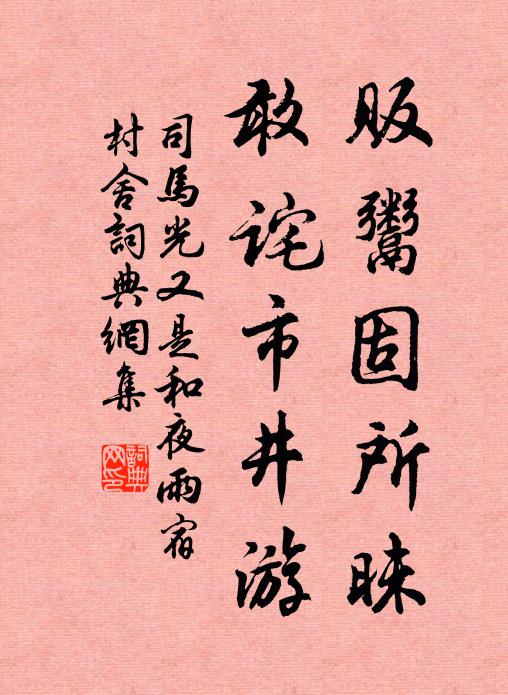 販鬻固所昧
敢詫市井游
司馬光又是和夜雨宿
村舍詞典網集
詞典网印